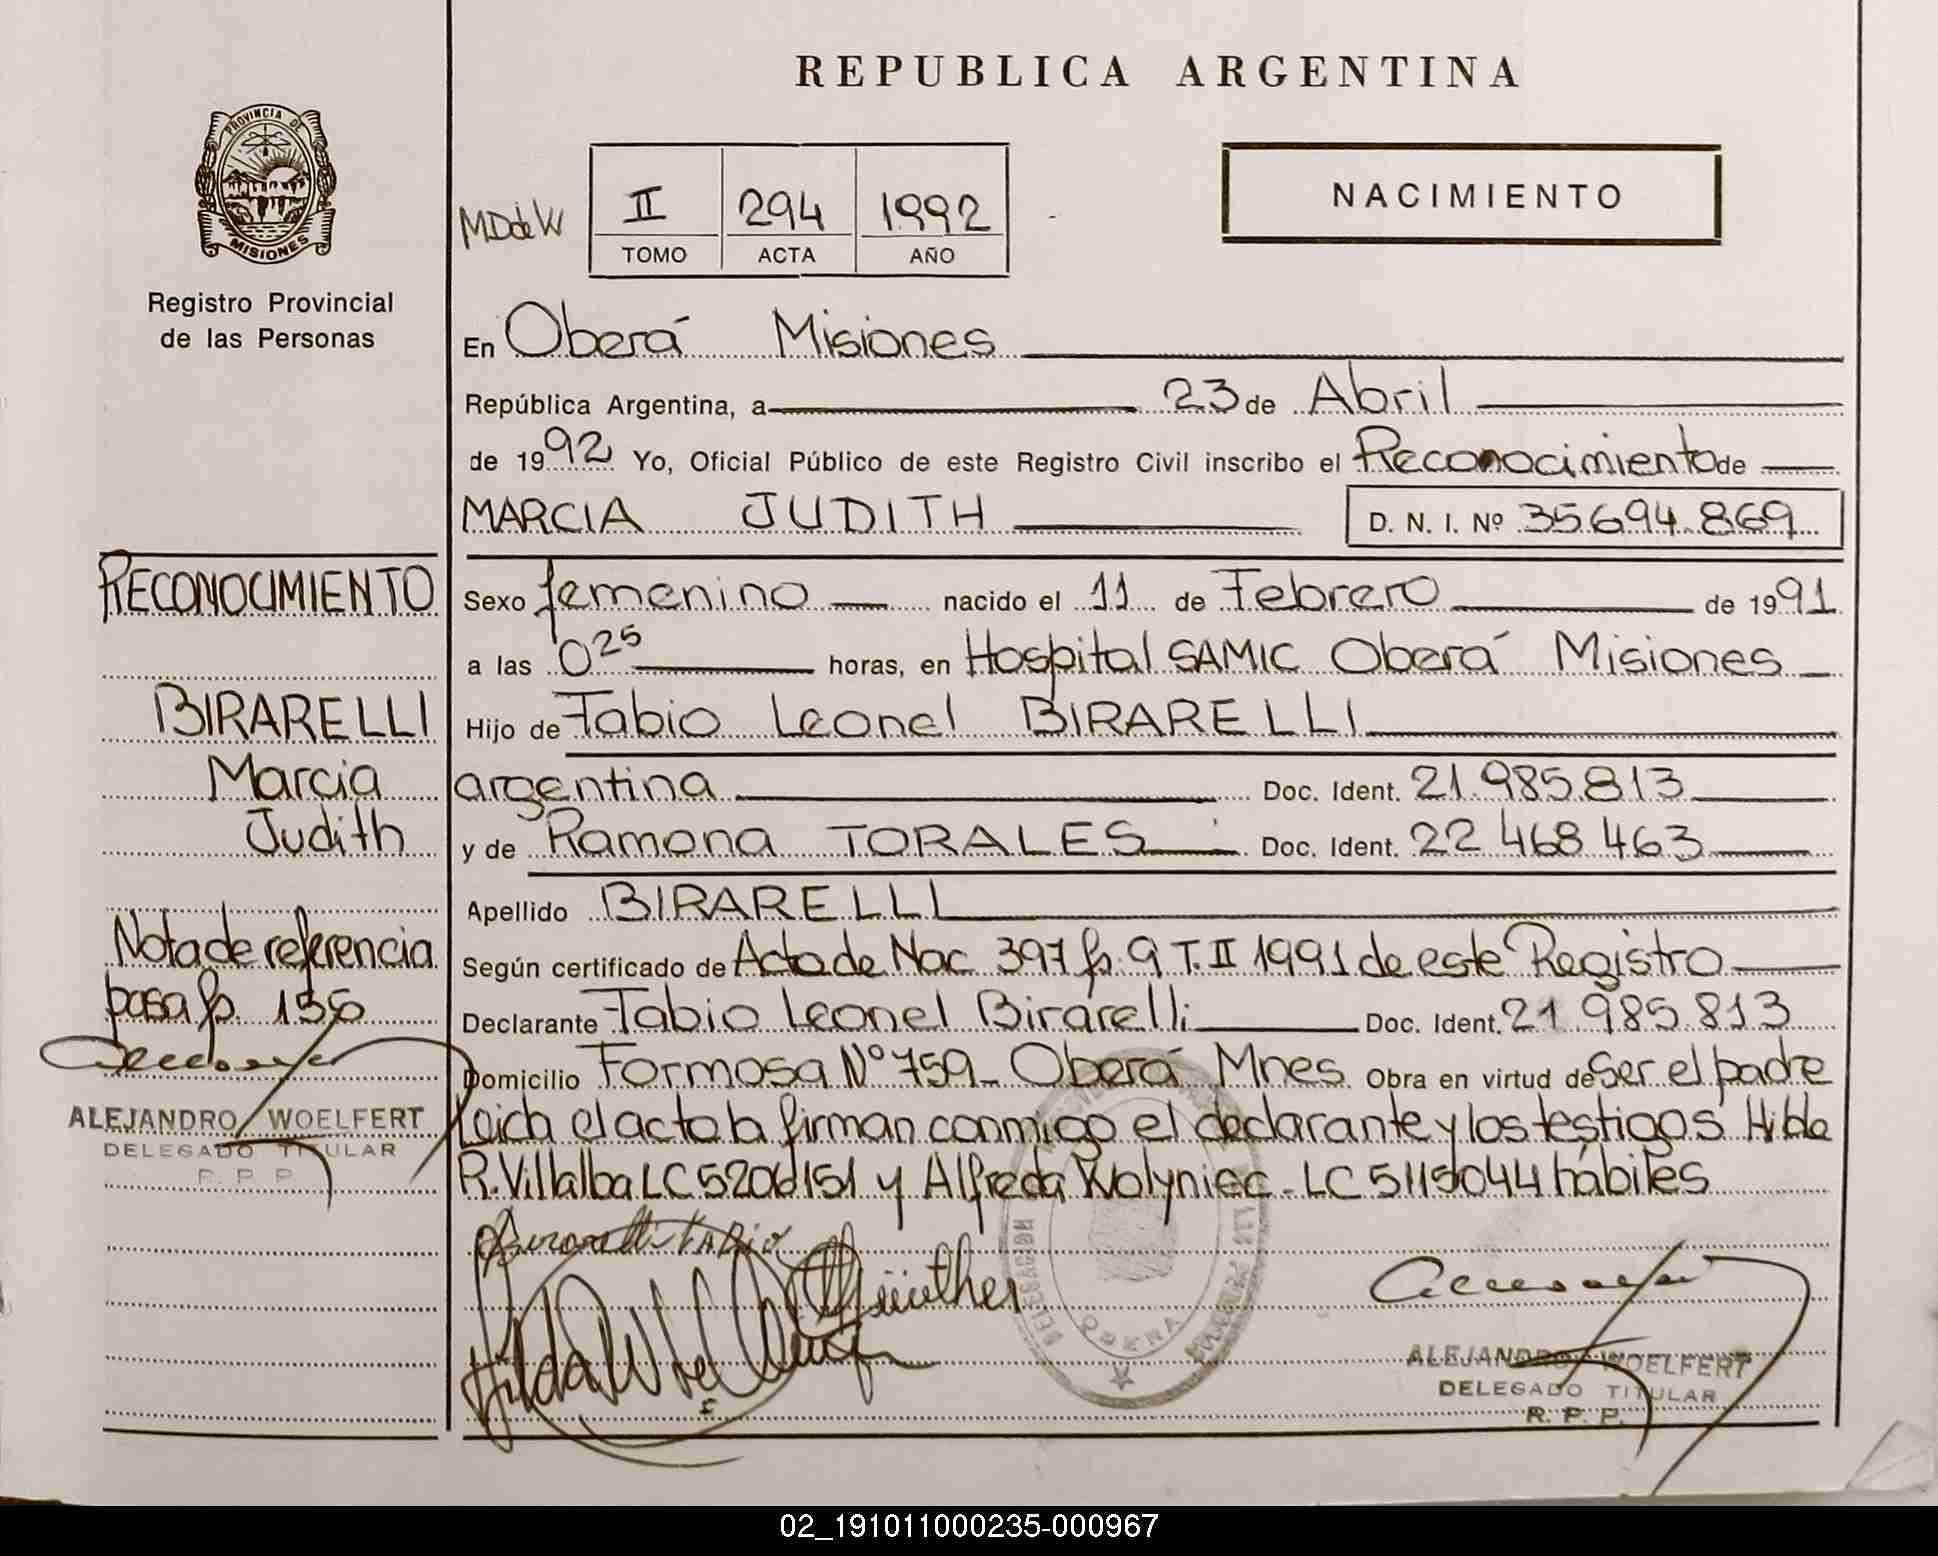 REPUBLICA ARGENTINA
PROVINCIA DE
MISIONES
Registro Provincial
de las Personas
MDdeW
II 294 1992
TOMO ACTA AÑO
NACIMIENTO
En Oberá Misiones
República Argentina, a 23 de Abril
de 1992 Yo, Oficial Público de este Registro Civil inscribo el Reconocimiento de
MARCIA JUDITH D. N. I. Nº 35694869
Sexo femenino nacido el 11 de Febrero de 1991
a las 0 25 horas, en Hospital SAMIC Oberá Misiones
Hijo de Fabio Leonel BIRARELLI
argentina Doc. Ident. 21.985.813
y de Ramona TORALES Doc. Ident. 22 468 463
Apellido BIRARELLI
Según certificado de Acta de Nac 397 fo. 9 T. II 1991 de este Registro
Declarante Fabio Leonel Birarelli Doc. Ident. 21 985.813
Domicilio Formosa Nº 759- Oberá Mnes Obra en virtud de Ser el padre
Leida el acta la firman conmigo el declarante y los testigos Hilda
R. Villalba LC 5206151 y Alfreda Wolyniec - LC 5115044 hábiles
Birarelli Fabio
Hilda
DELEGACION
OBERA
ALEJANDRO WOELFERT
DELEGADO TITULAR
R. P. P.
RECONOCIMIENTO
BIRARELLI
Marcia
Judith
Nota de referencia
pasa fo. 156
ALEJANDRO WOELFERT
DELEGADO TITULAR
R. P. P.
02_191011000235-000967